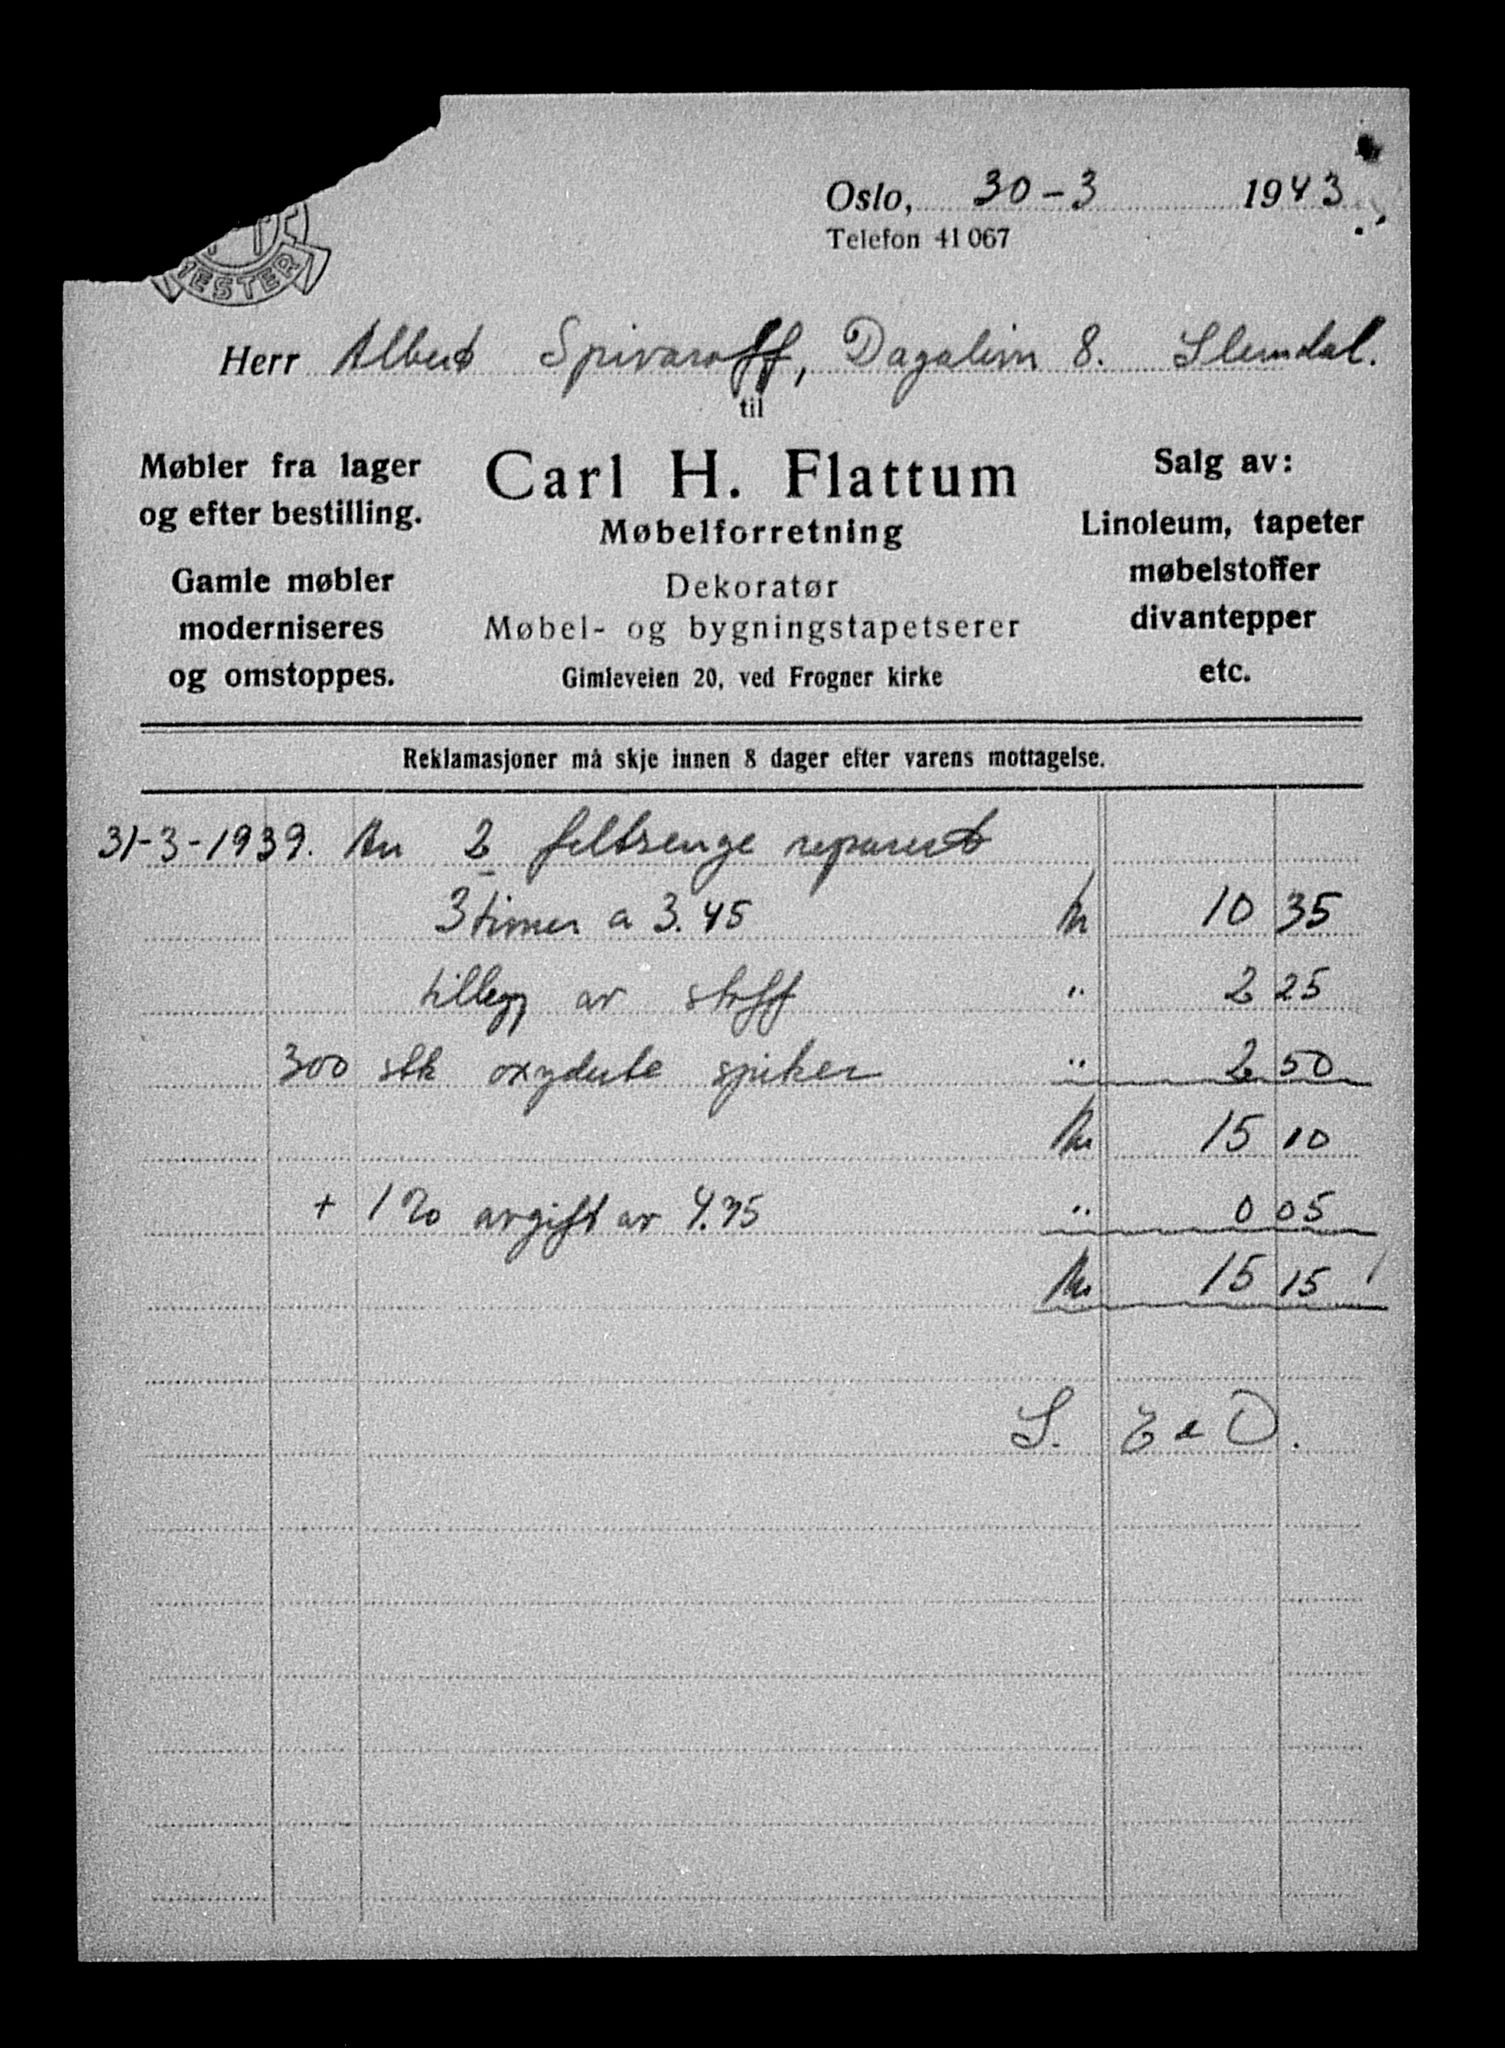 MESTER
Oslo, 30-3 1943
Telefon 41067
Herr Albert Spivaroff, Dagalivn 8. Slemdal.
til
Møbler fra lager
og efter bestilling.
Gamle møbler
moderniseres
og omstoppes.
Carl H. Flattum
Møbelforretning
Dekoratør
Møbel- og bygningstapetserer
Gimleveien 20, ved Frogner kirke
Salg av:
Linoleum, tapeter
møbelstoffer
divantepper
etc.
Reklamasjoner må skje innen 8 dager efter varens mottagelse.
31-3-1939. An 2 feltsenge reparert
3 timer a 3.45 kr 10 35
tillegg av stoff " 2 25
300 stk oxyderte spiker " 2 50
kr 15 10
+ 1% avgift av 4.75 " 0 05
kr 15 15
S. E & O.